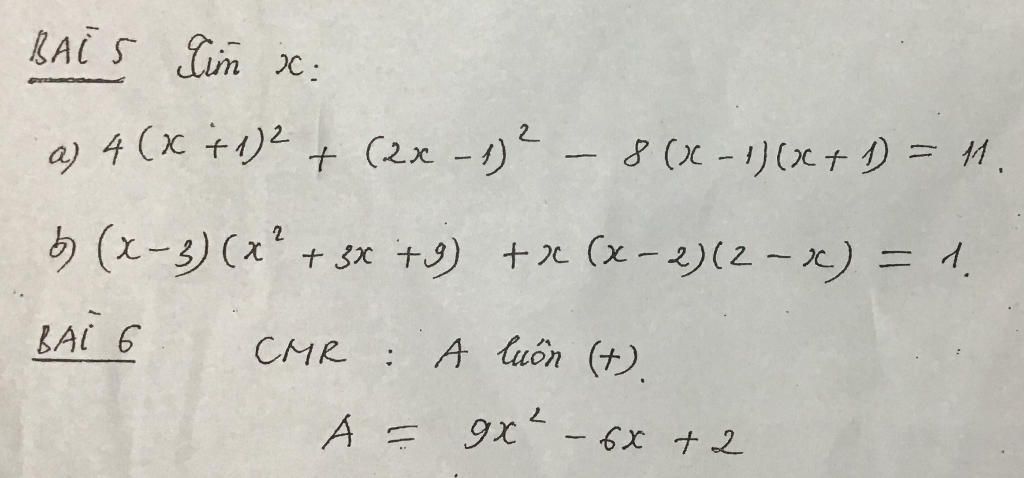 BÀI 5 Tìm x:
a) 4(x+1)² + (2x-1)² - 8(x-1)(x+1) = 11.
b) (x-3)(x² + 3x +9) + x(x-2)(2-x) = 1.
BÀI 6 CMR : A luôn (+).
A = 9x² - 6x + 2